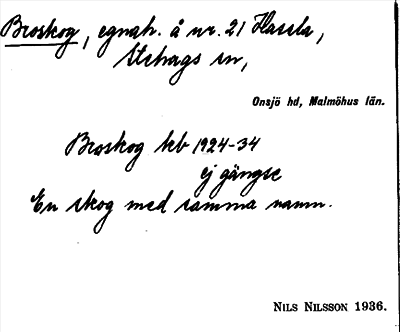 Broskog, egnah. å nr. 21 Hassla,
Stehags sn,
Onsjö hd, Malmöhus län.
Broskog kb 1924-34
ej gängse
En skog med samma namn.
NILS NILSSON 1936.